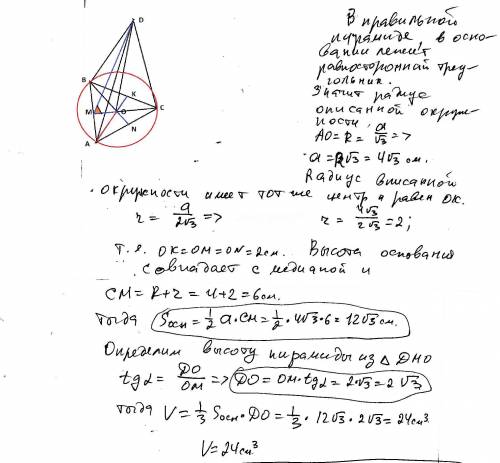 D
B
K
M O C
N
A
В правильной
пирамиде, в осно-
вании лежит
равносторонний треу-
гольник.
Значит радиус
описанной окруж-
ности
AO = R = a/√3 =>
a = R√3 = 4√3 см.
Радиус вписанной
окружности имеет тот же центр и равен ОК.
r = a/2√3 => r = 4√3/2√3 = 2;
Т.е. OK=OM=ON=2см. Высота основания
совпадает с медианой и
CM = R+r = 4+2 = 6см.
тогда Sосн = 1/2 a·CH = 1/2 · 4√3·6 = 12√3 см.
Определим высоту пирамиды из △ DMO
tgα = DO/OM => DO = OM·tgα = 2·√3 = 2√3.
тогда V = 1/3 Sосн·DO = 1/3 · 12√3 · 2√3 = 24см³
V = 24см³